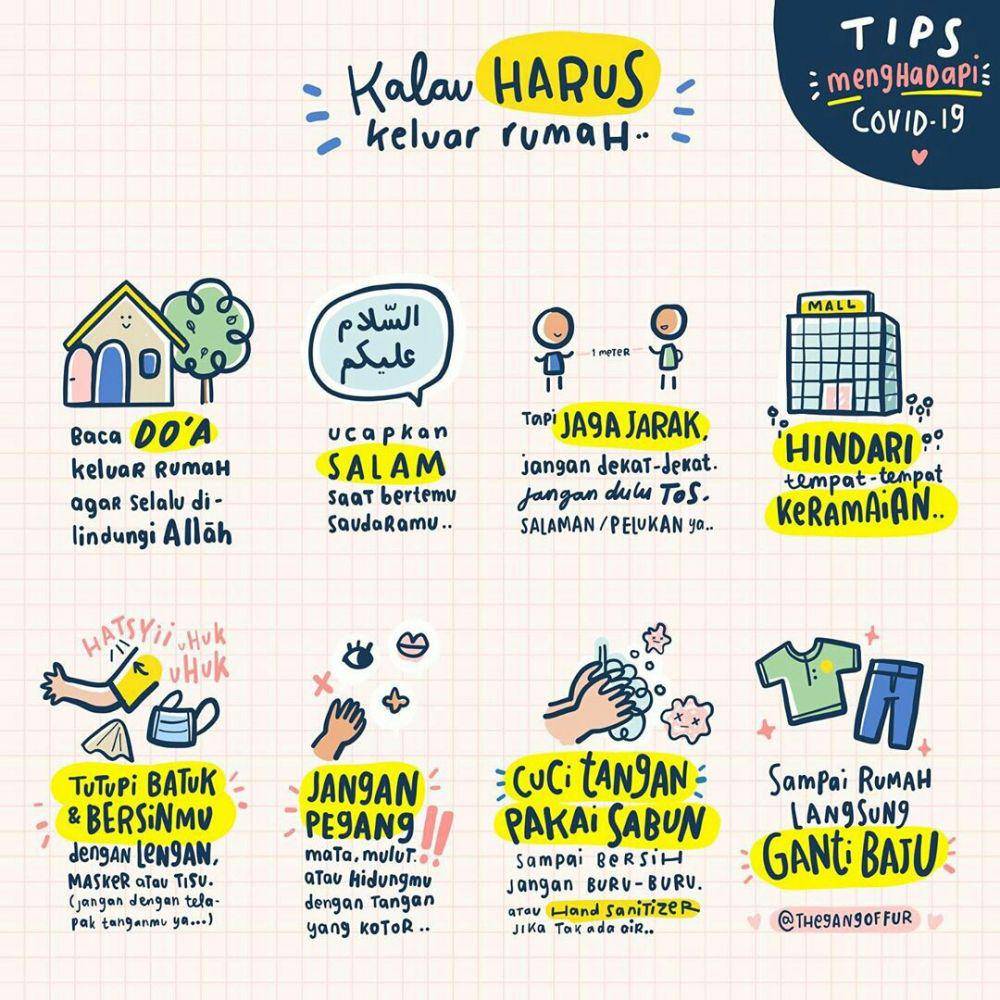 Kalau HARUS
keluar rumaH..
TIPS
mengHaDaPi
COVID-19
Baca DO'A
keluar Rumah
agar selalu di-
lindungi Allāh
السَّلام
عليكم
ucapkan
SALAM
saat bertemu
saudaramu..
1 meter
Tapi JAGA JARAK,
jangan dekat-dekat.
jangan dulu TOS,
SALAMAN / PELUKAN ya..
MALL
HINDARI
tempat-tempat
KERAMAIAN..
HATSYii uHuk
uHuk
TUTUPI BATUK
& BERSINMU
dengan LENGAN,
MASKER atau TISU.
(jangan dengan tela-
pak tanganmu ya...)
JANGAN
PEGANG !!
mata, mulut.
atau Hidungmu
dengan Tangan
yang KOTOR..
CUCI TANGAN
PAKAI SABUN
Sampai BERSIH
jangan BURU-BURU.
atau Hand SANITIZER
JIKA Tak ada aiR..
Sampai RUMAH
LANGSUNG
GANTI BAJU
@THEGANGOFFUR